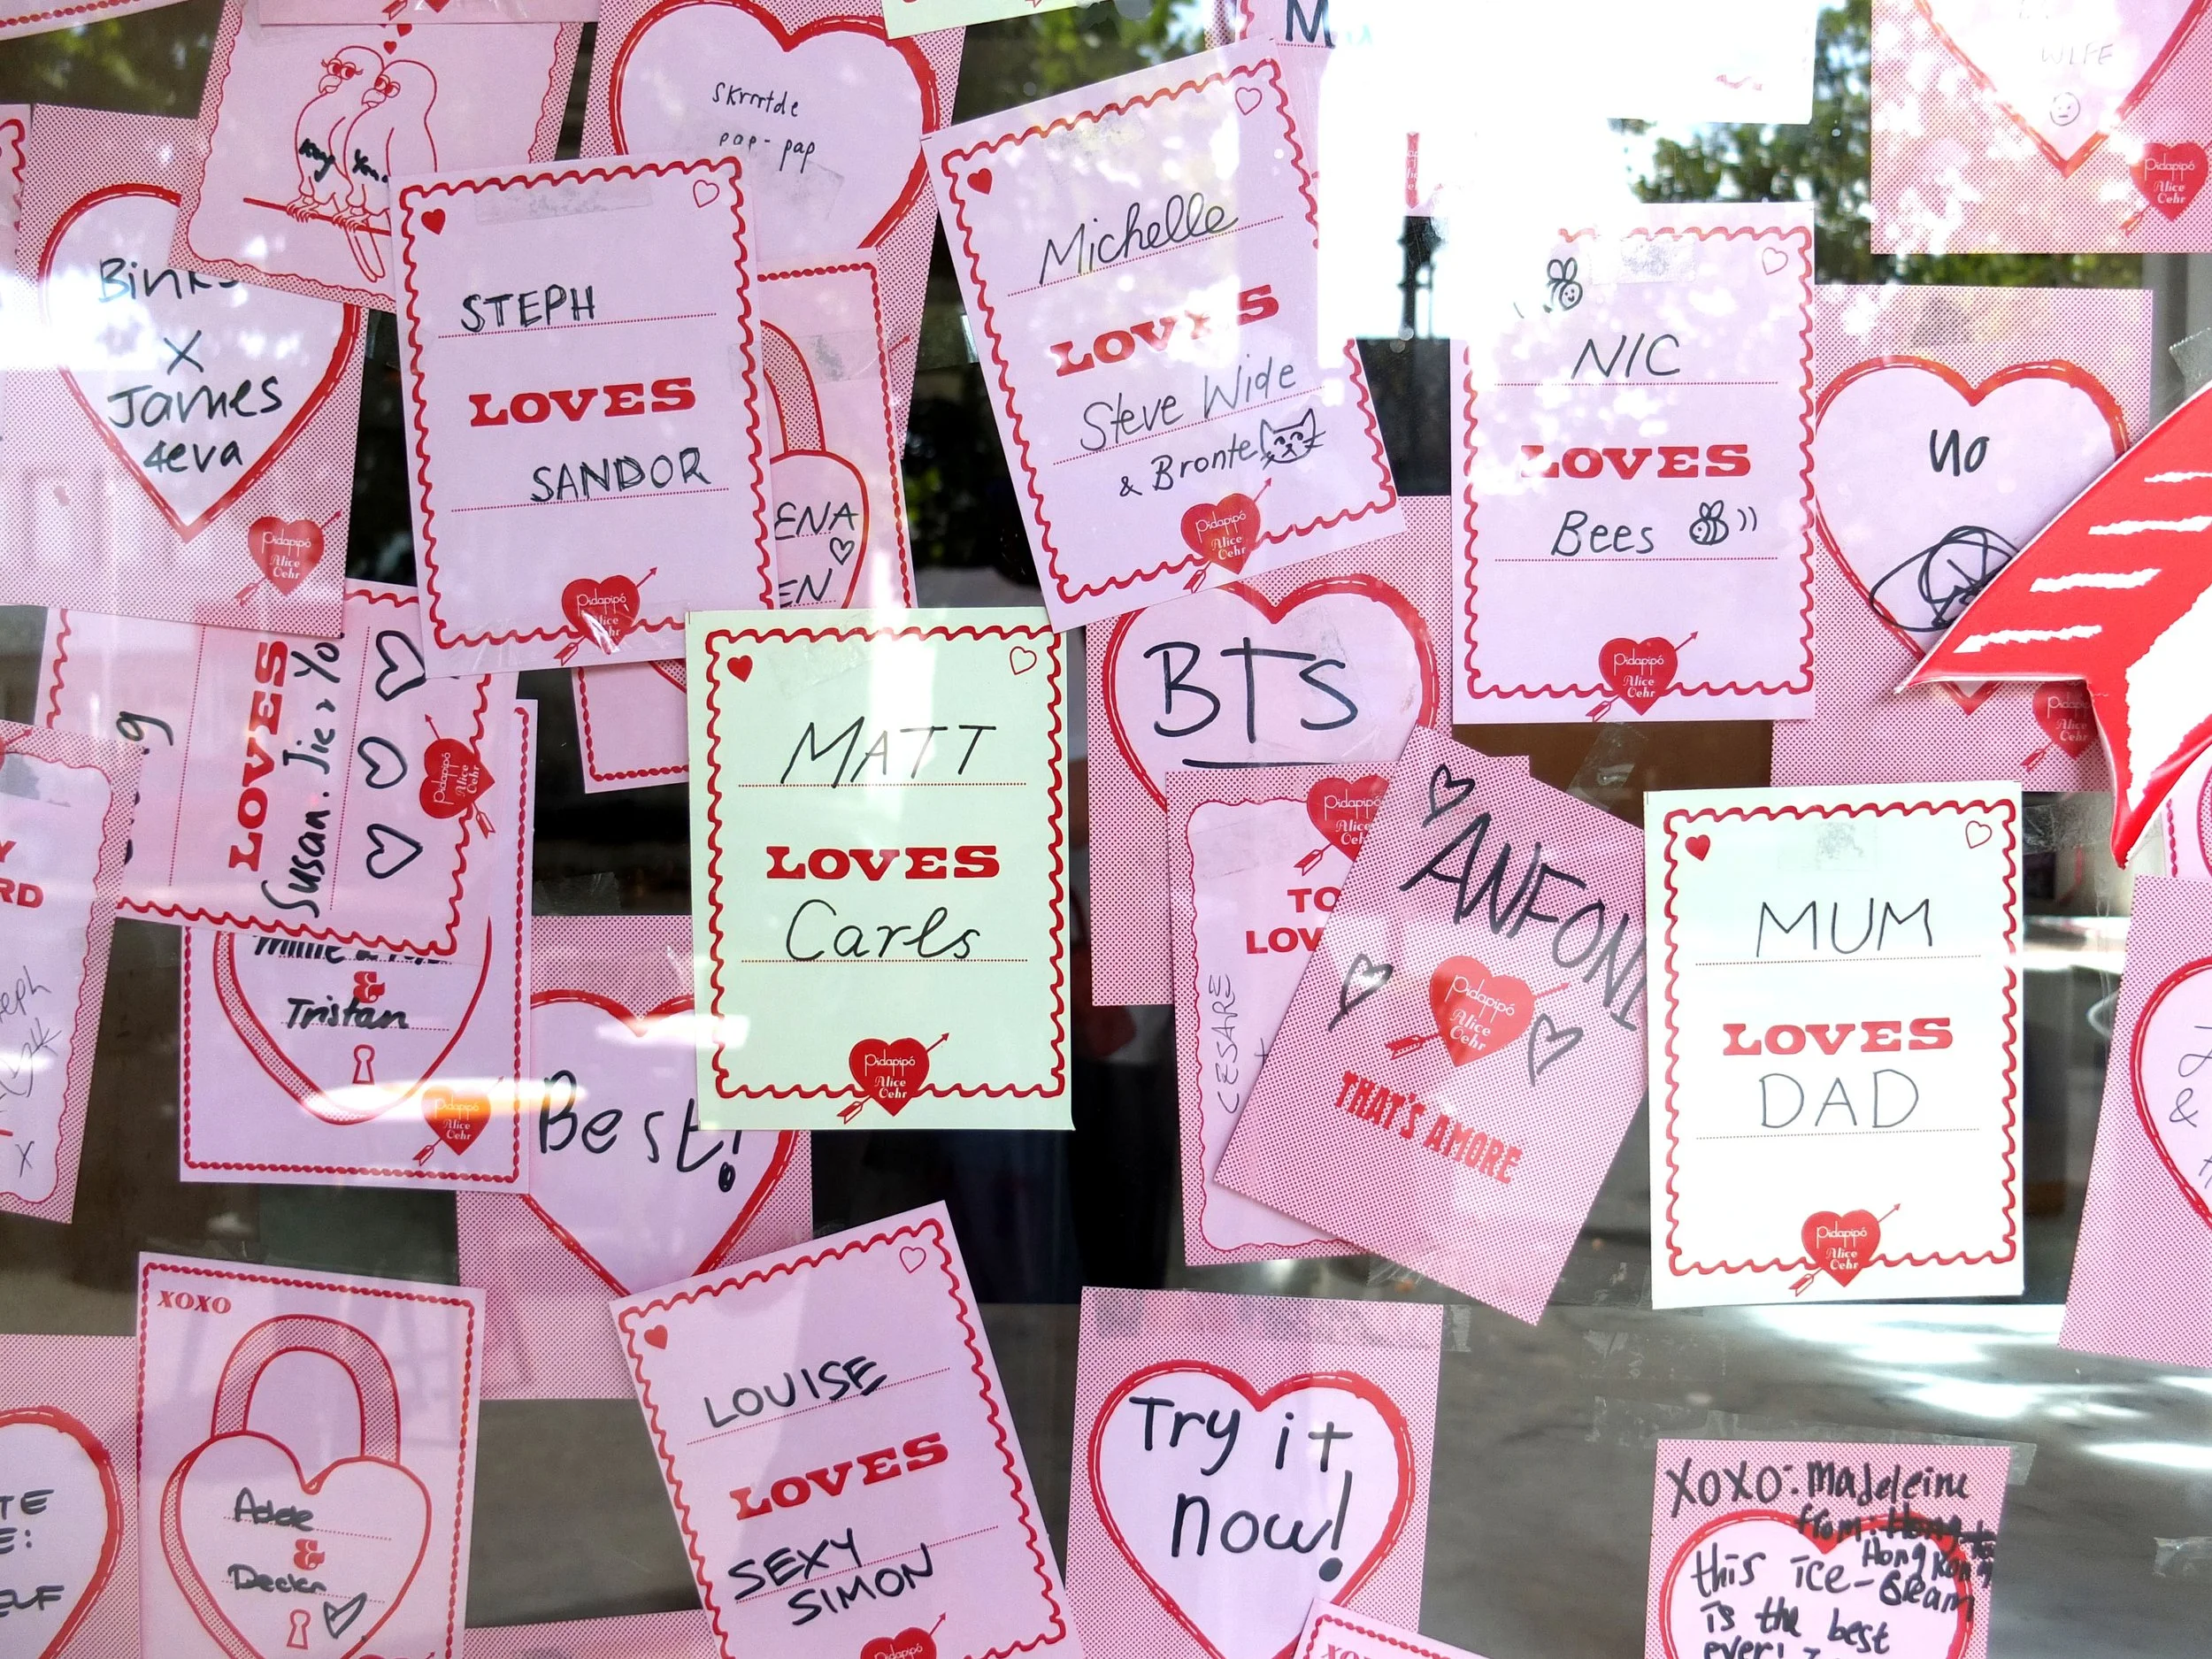 WIFE
skrrrtde
pap-pap
Binks
X
James
4eva
Pidapipó
Alice
Oehr
STEPH
LOVES
SANDOR
Pidapipó
Alice
Oehr
Michelle
LOVES
Steve Wide
& Bronte
Pidapipó
Alice
Oehr
NIC
LOVES
Bees
Pidapipó
Alice
Oehr
yo
Pidapipó
Alice
Oehr
ENA
EN
LOVES
Susan. Jie
Pidapipó
Alice
Oehr
MATT
LOVES
Carls
Pidapipó
Alice
Oehr
BTS
Pidapipó
Alice
TO
LOV
CESARE
ANFONI
Pidapipó
Alice
Oehr
THAT'S AMORE
MUM
LOVES
DAD
Pidapipó
Alice
Oehr
RD
x
&
Tristan
Pidapipó
Alice
Oehr
Best!
&
XOXO
&
Declan
LOUISE
LOVES
SEXY
SIMON
Try it
now!
XOXO: Madeleine
from:
Hong Kong
this ice-cream
is the best
ever!
XOXO